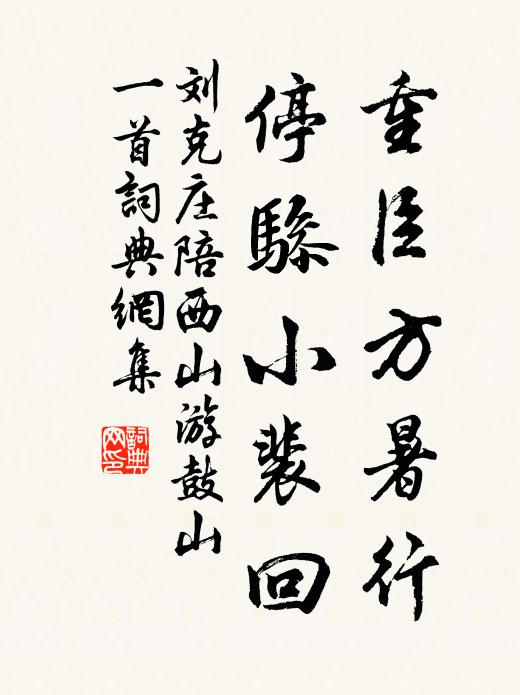 重臣方暑行
停骖小裴回
刘克庄陪西山游鼓山
一首詞典網集
詞典
网印